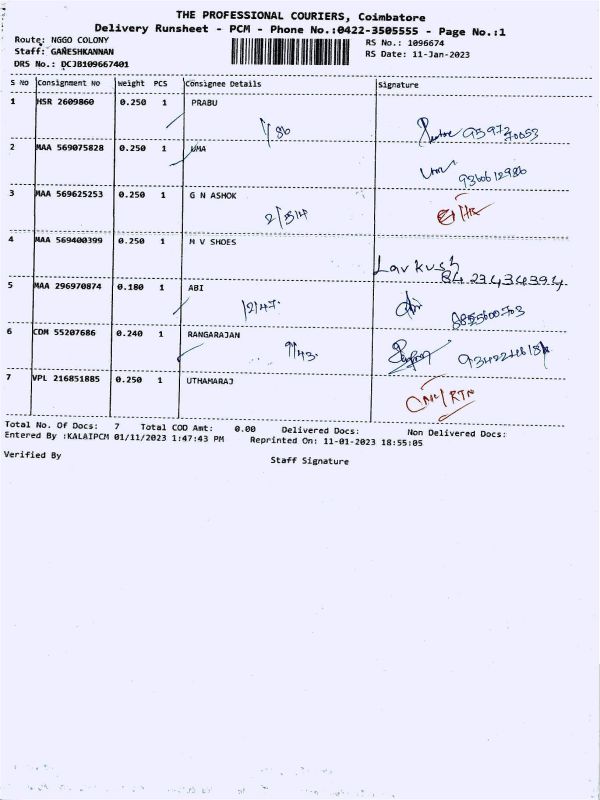 THE PROFESSIONAL COURIERS, Coimbatore
Delivery Runsheet - PCM - Phone No.:0422-3505555 - Page No.:1
Route: NGGO COLONY
RS No.: 1096674
Staff: GANESHKANNAN
RS Date: 11-Jan-2023
DRS No.: DCJB109667401
S No Consignment No Weight PCS Consignee Details Signature
1 HSR 2609860 0.250 1 PRABU
2 MAA 569075828 0.250 1 UMA
9360612986
3 MAA 569625253 0.250 1 G N ASHOK
2/314
4 MAA 569400399 0.250 1 M V SHOES
Lavkush
8423434394
5 MAA 296970874 0.180 1 ABI
12/47.
6 CDM 55207686 0.240 1 RANGARAJAN
9/43.
7 VPL 216851885 0.250 1 UTHAMARAJ
Total No. Of Docs: 7 Total COD Amt: 0.00 Delivered Docs: Non Delivered Docs:
Entered By :KALAIPCM 01/11/2023 1:47:43 PM Reprinted On: 11-01-2023 18:55:05
Verified By Staff Signature